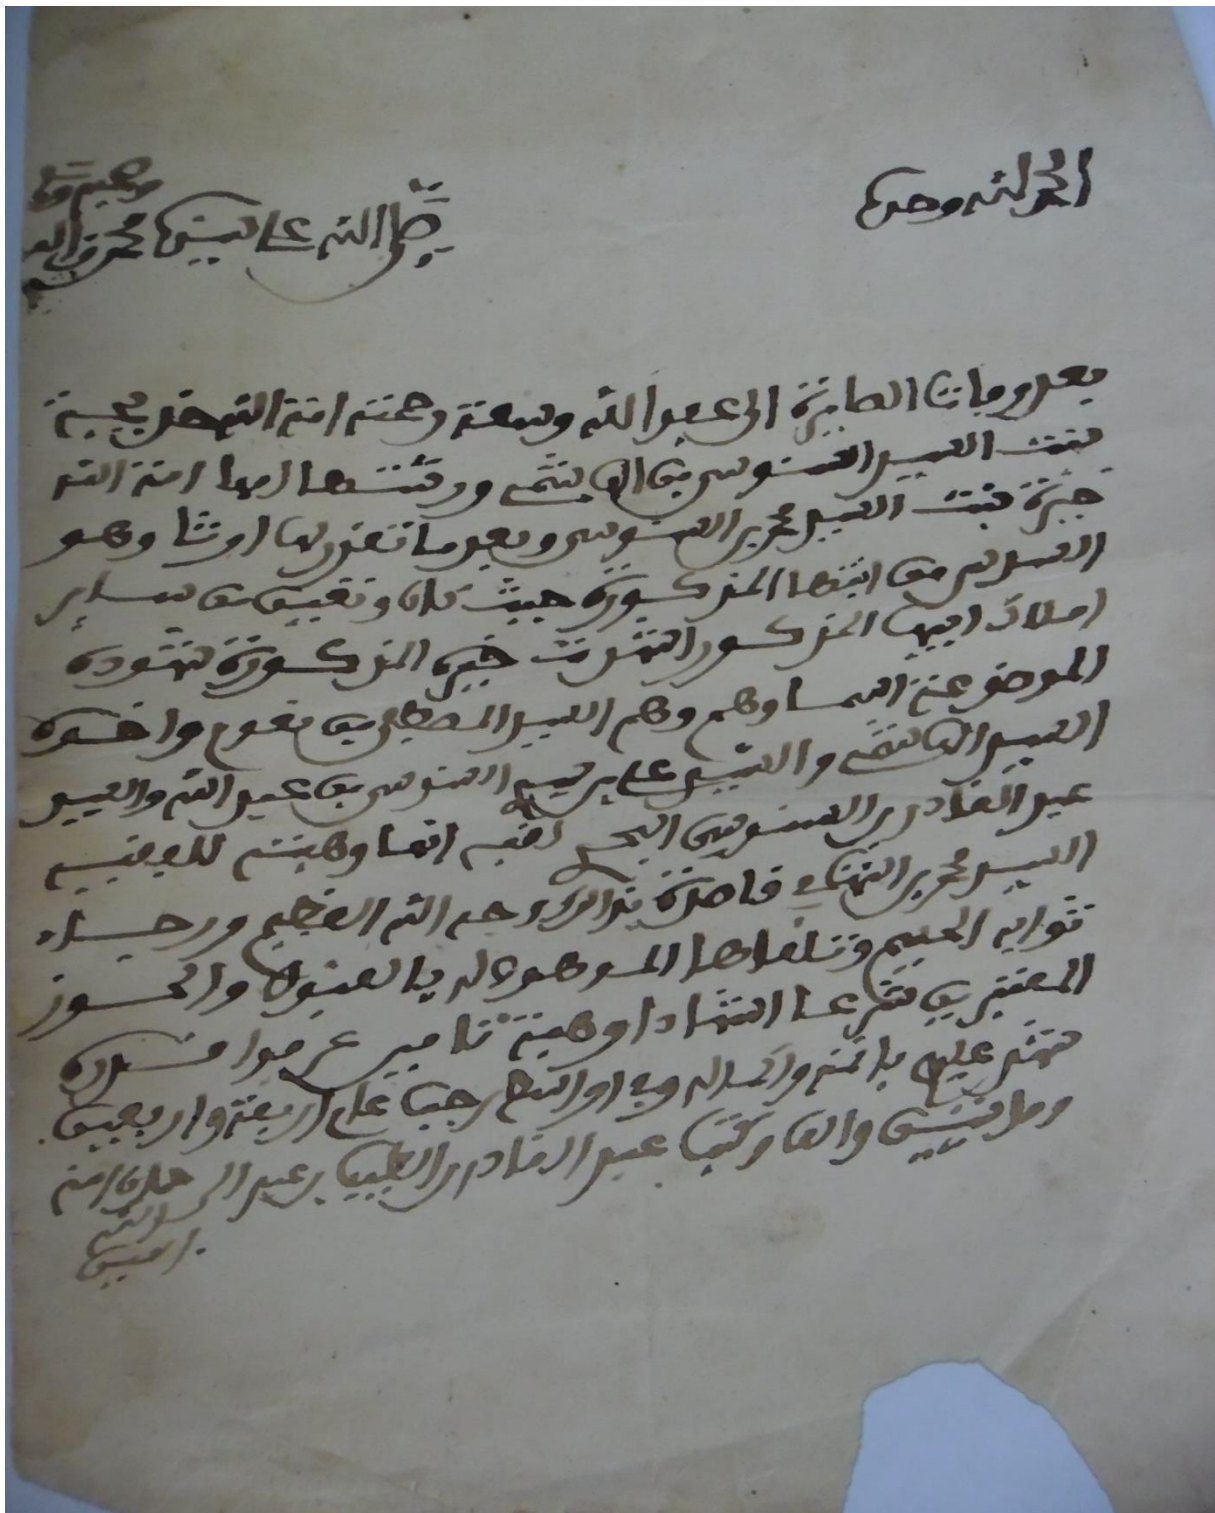 الحمد لله وحده
صلى الله على نبينا محمد وآله
وصحبه
بعد وفات الصابرة الى عفو الله وسعة رحمته امة الله خديجة
بنت السيد السنوسي بن الهاشمي ورثتها امها امة الله
خيرة بنت السيد محمد بن السنوسي وبعد ما تقرر لها ارثا وهو
السدس من ابنتها المذكورة حيث كان وتعين من ساير
املاك ابيها المذكور اشهدت خيرة المذكورة شهوده
الموضوعة اسماوهم وهم السيد المصطفى بن واخوه
السيد الهاشمي والسيد علي بن السنوسي بن عبد الله والسيد
عبد القادر بن السنوسي انها وهبته للفقيه
السيد محمد بن التهامي قاصدة بذالك وجه الله العظيم ورجاء
ثوابه الجسيم وتلقاها الموهوب له بالقبول والحوز
المعتبرين شرعا اشهادا وهبة تامين عرفوا قدره
شهد عليهم باتمه واكماله وفي اواسط رجب عام اربعة واربعين
ومائتين والف وكتب عبد القادر بن الطيب بن عبد الرحمان امنه
الله
امين